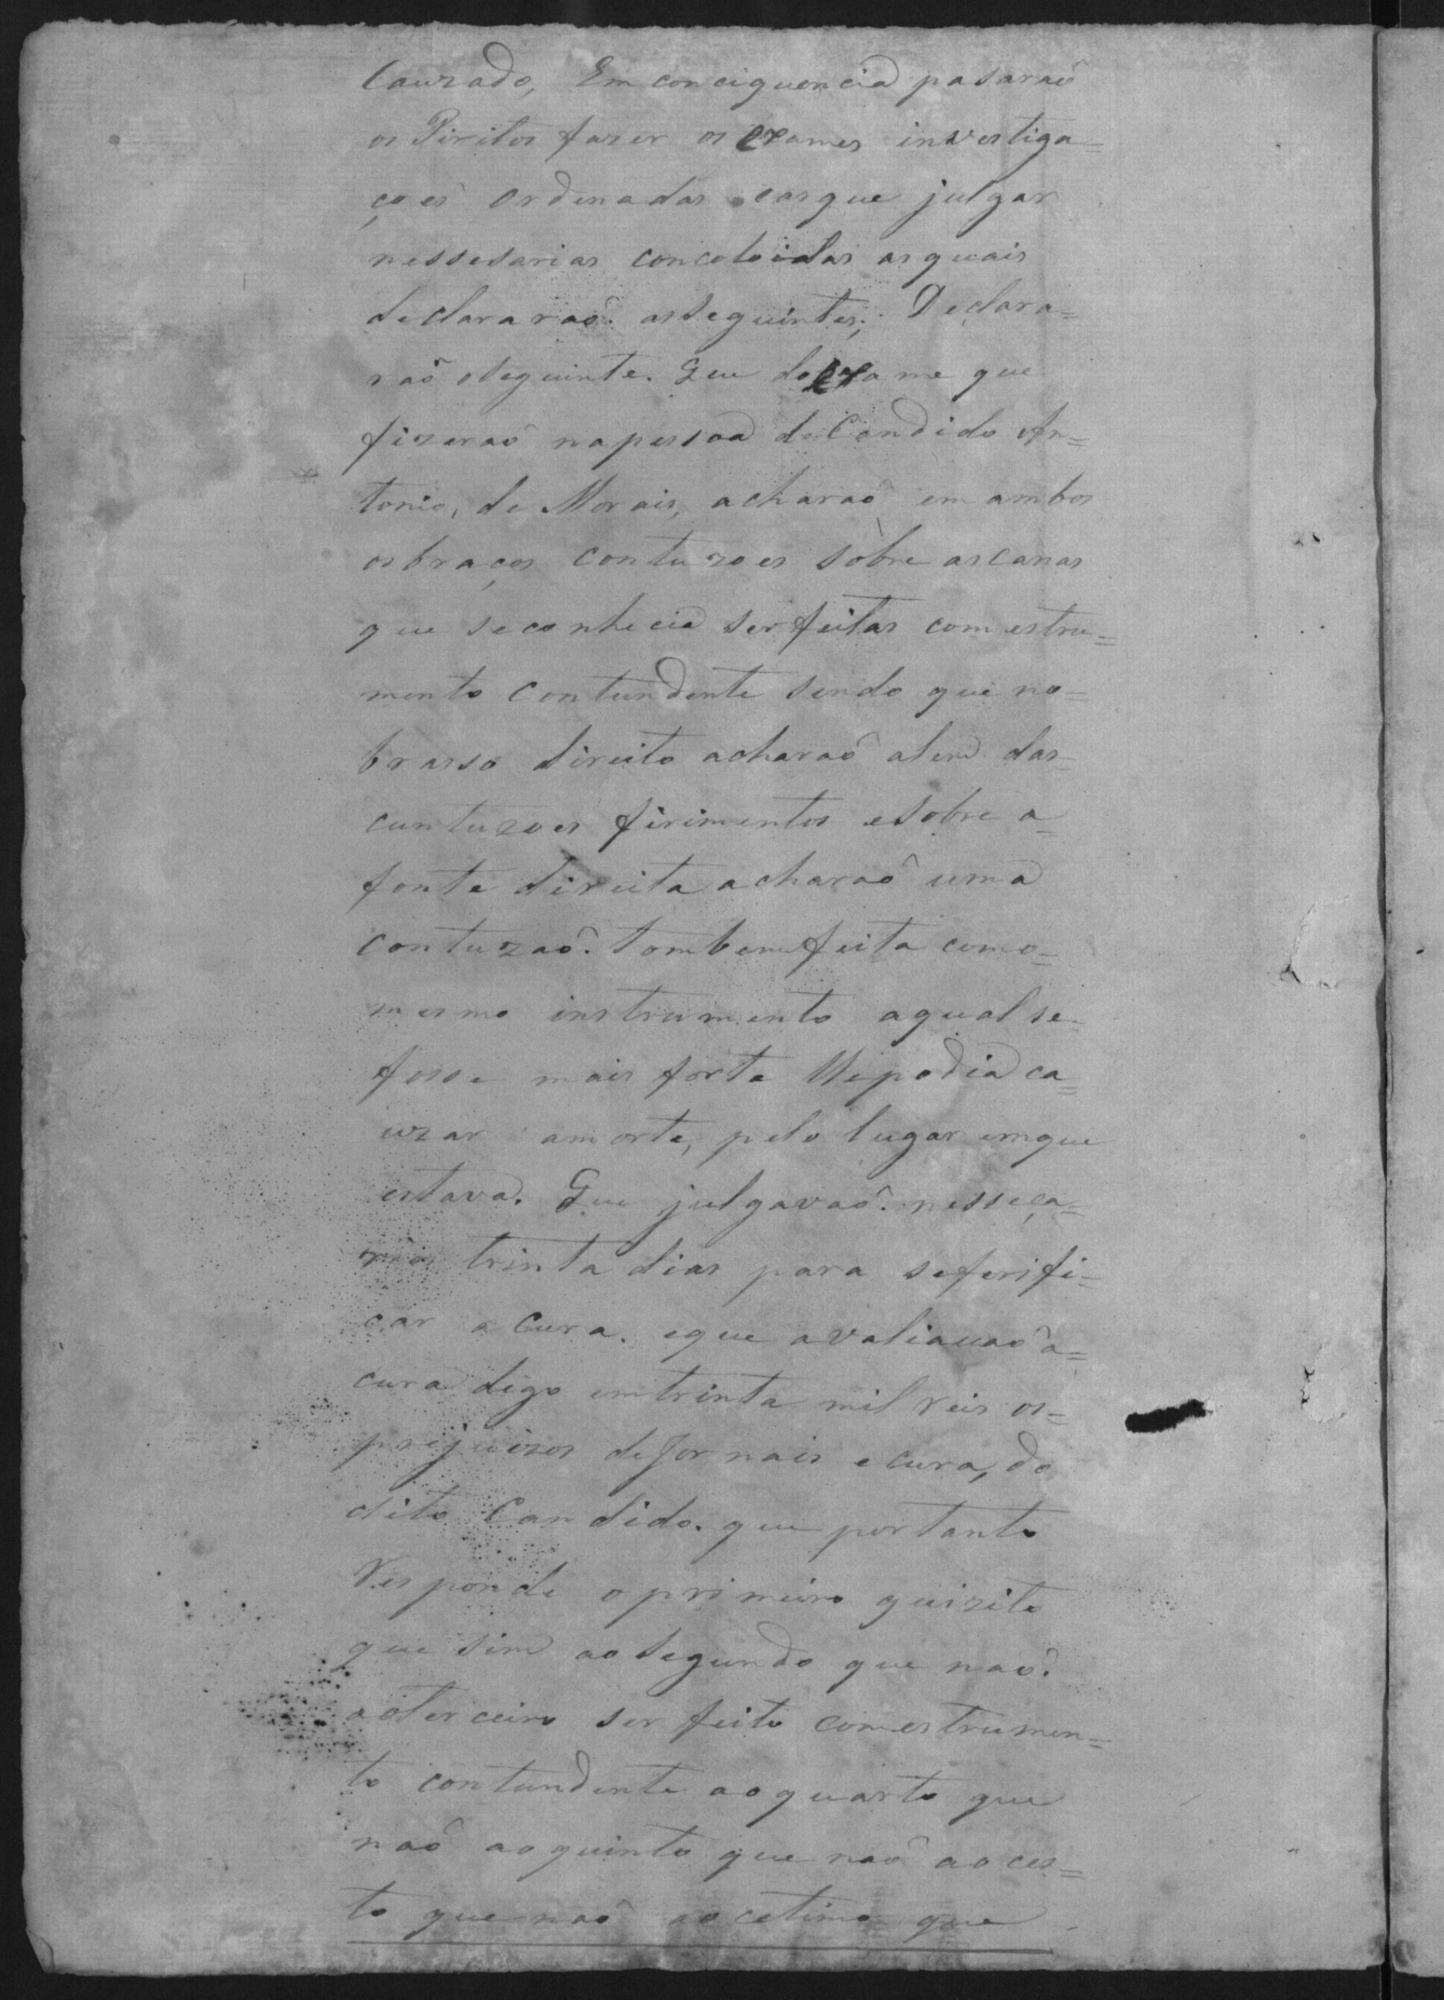 Cauzado, Em conciquencia pasaraõ
os Piritos fazer os exames investiga=
çoes ordenadas easque julgar
nessesarias concoloidas as quais
declararaõ. asseguintes; Declara=
raõ oseguinte. Que do exame que
fizeraõ napessoa de Candido An=
tonio, de Morais, acharaõ em ambos
osbraços contuzoes sobre ascanas
que seconhecia serfeitas comestru=
mento contundente sendo que no=
brasso direito acharaõ alem das=
cuntuzoes firimentos esobre a=
fonte direita acharaõ uma
contuzaõ. tombemfeita como=
mesmo instrumento aqual se=
fosse mais forte lhepodia ca=
uzar amorte, pelo lugar emque
estava. Que julgavaõ. nesseça=
rios trinta dias para seferifi=
car a cura. eque avaliavaõ a=
cura digo emtrinta mil reis os=
prejuizos deJornais ecura, do
dito Candido. que portanto
Responde oprimeiro quizito
que sim aosegundo que naõ.
aoterceiro ser feito comestrumen=
to contundente aoquarto que
naõ aoquinto que naõ ao ces=
to que naõ aocetimo que